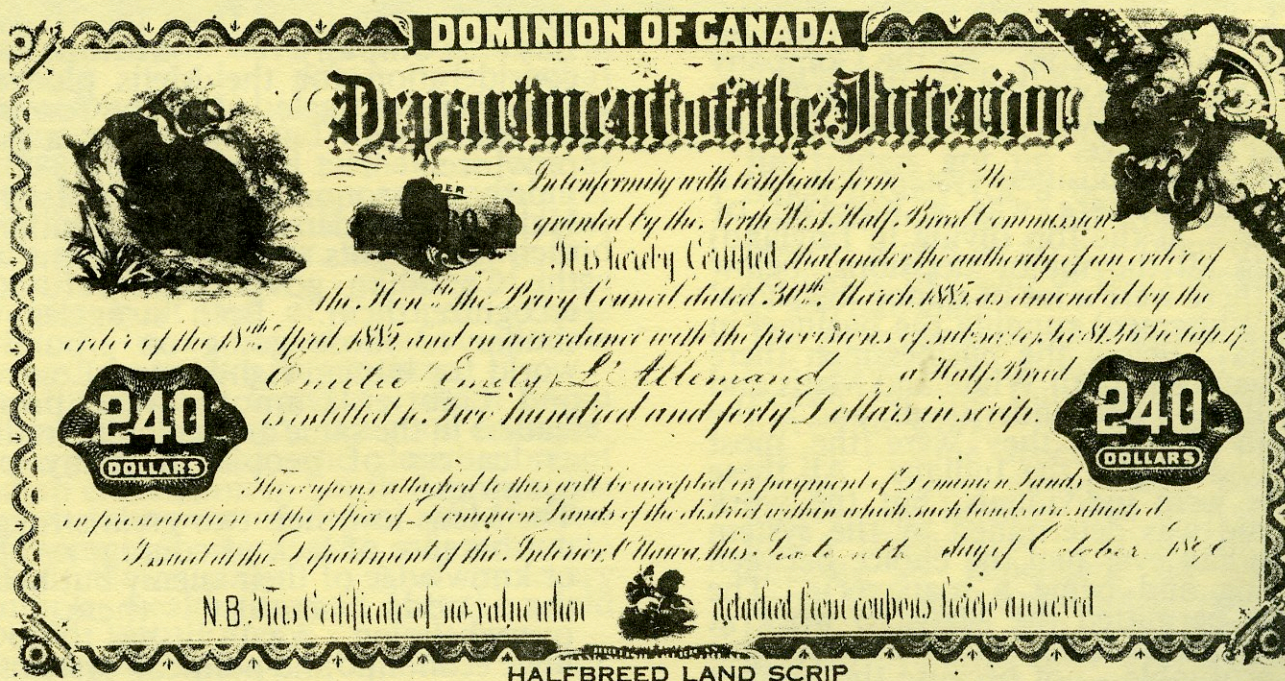 DOMINION OF CANADA
Department of the Interior
In conformity with Certificate form No.
granted by the North West Half Breed Commission.
It is hereby Certified that under the authority of an order of
the Honble the Privy Council dated 30th March, 1885, as amended by the
order of the 18th April, 1885, and in accordance with the provisions of
Emilie (Emily) L'Allemand a Half Breed
is entitled to Two hundred and forty Dollars in scrip.
240 DOLLARS
240 DOLLARS
The coupons attached to this will be accepted in payment of Dominion Lands
on presentation at the office of Dominion Lands of the district within which such lands are situated
Issued at the Department of the Interior, Ottawa, this day of October
N.B. This Certificate of no value when detached from coupons hereto annexed
HALFBREED LAND SCRIP